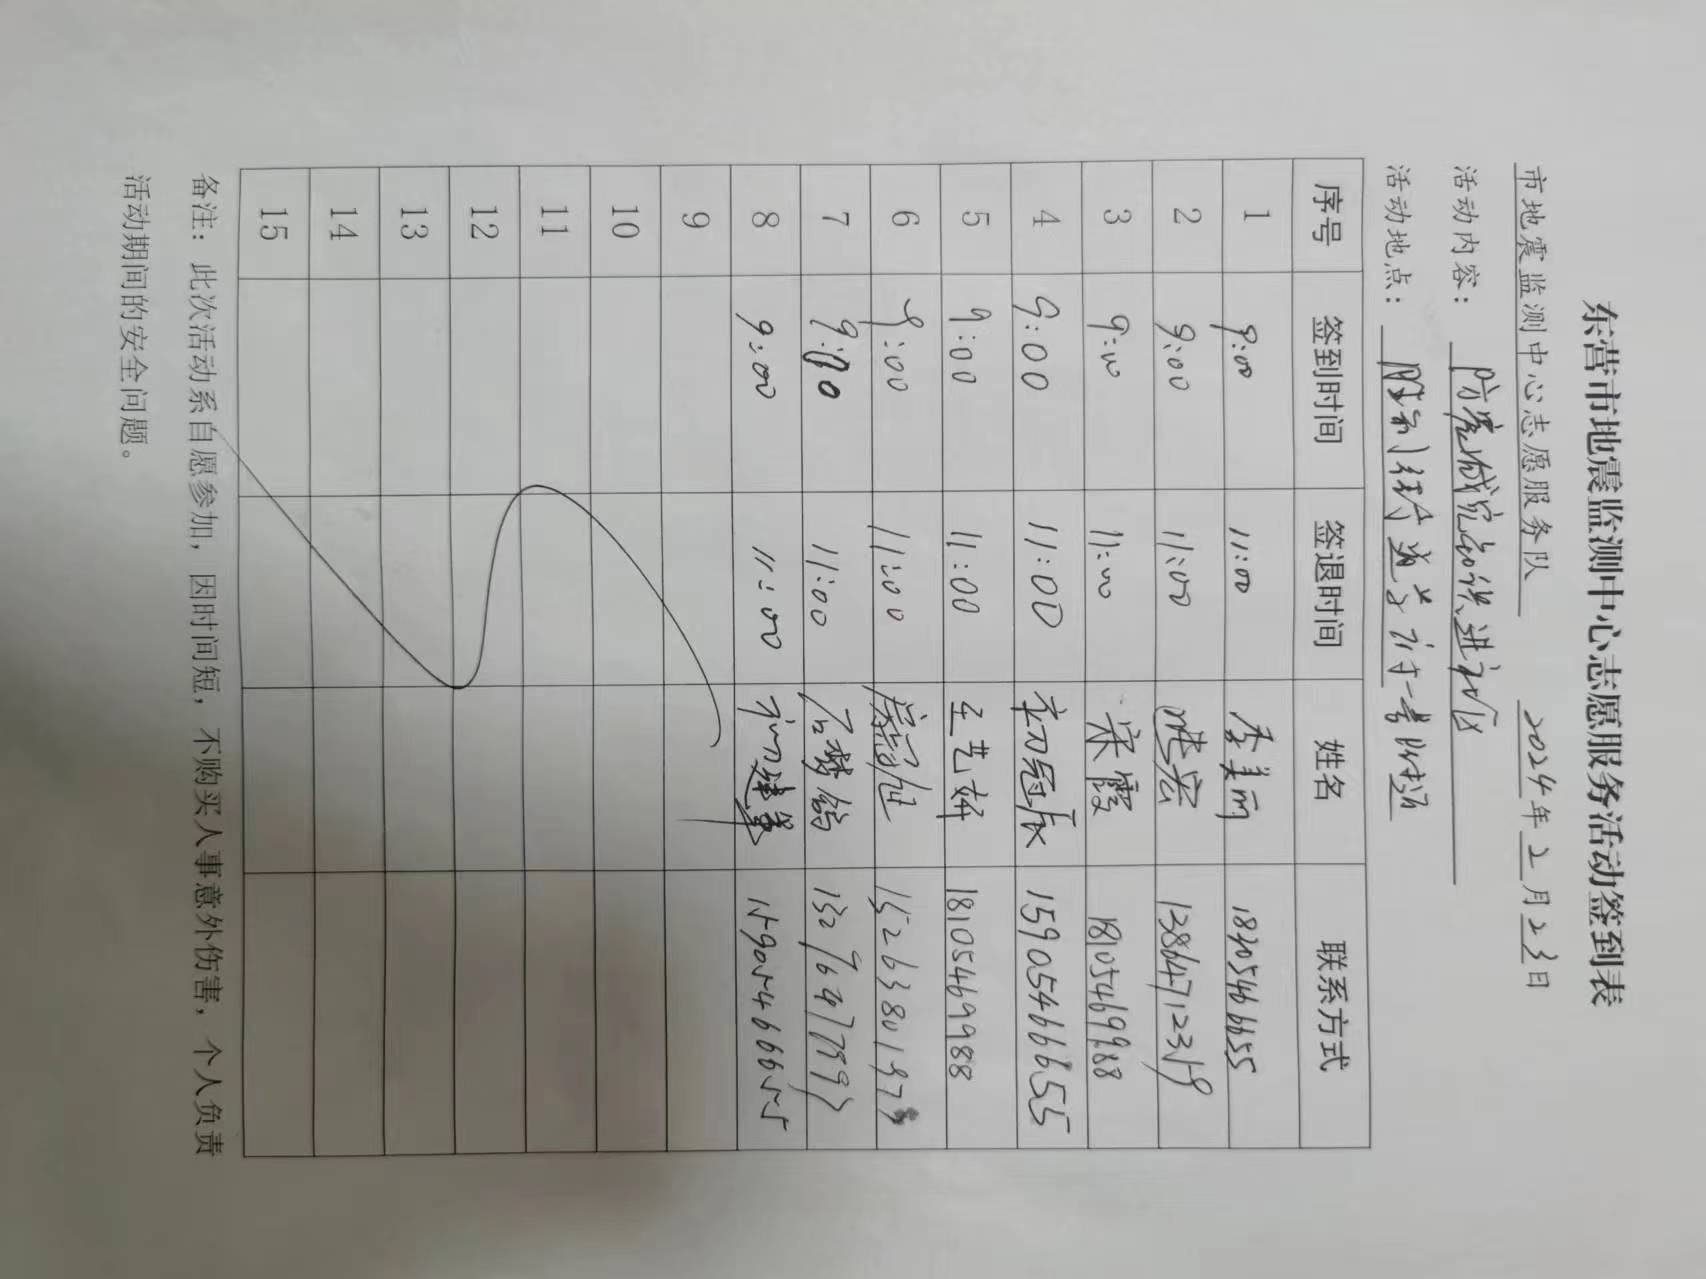 东营市地震监测中心志愿服务活动签到表
市地震监测中心志愿服务队 2024年2月23日
活动内容： 防震减灾知识进社区
活动地点： 胜利街道 附近
序号 签到时间 签退时间 姓名 联系方式
1 9:00 11:00 李美丽 18305466655
2 9:00 11:00 宏 13864712319
3 9:00 11:00 宋霞 18105469988
4 9:00 11:00 冠辰 15905466655
5 9:00 11:00 王艺妍 18105469988
6 9:00 11:00
7 9:00 11:00 石梦鸽
8 9:00 11:00 15905466655
9
10
11
12
13
14
15
备注：此次活动系自愿参加，因时间短，不购买人事意外伤害，个人负责
活动期间的安全问题。